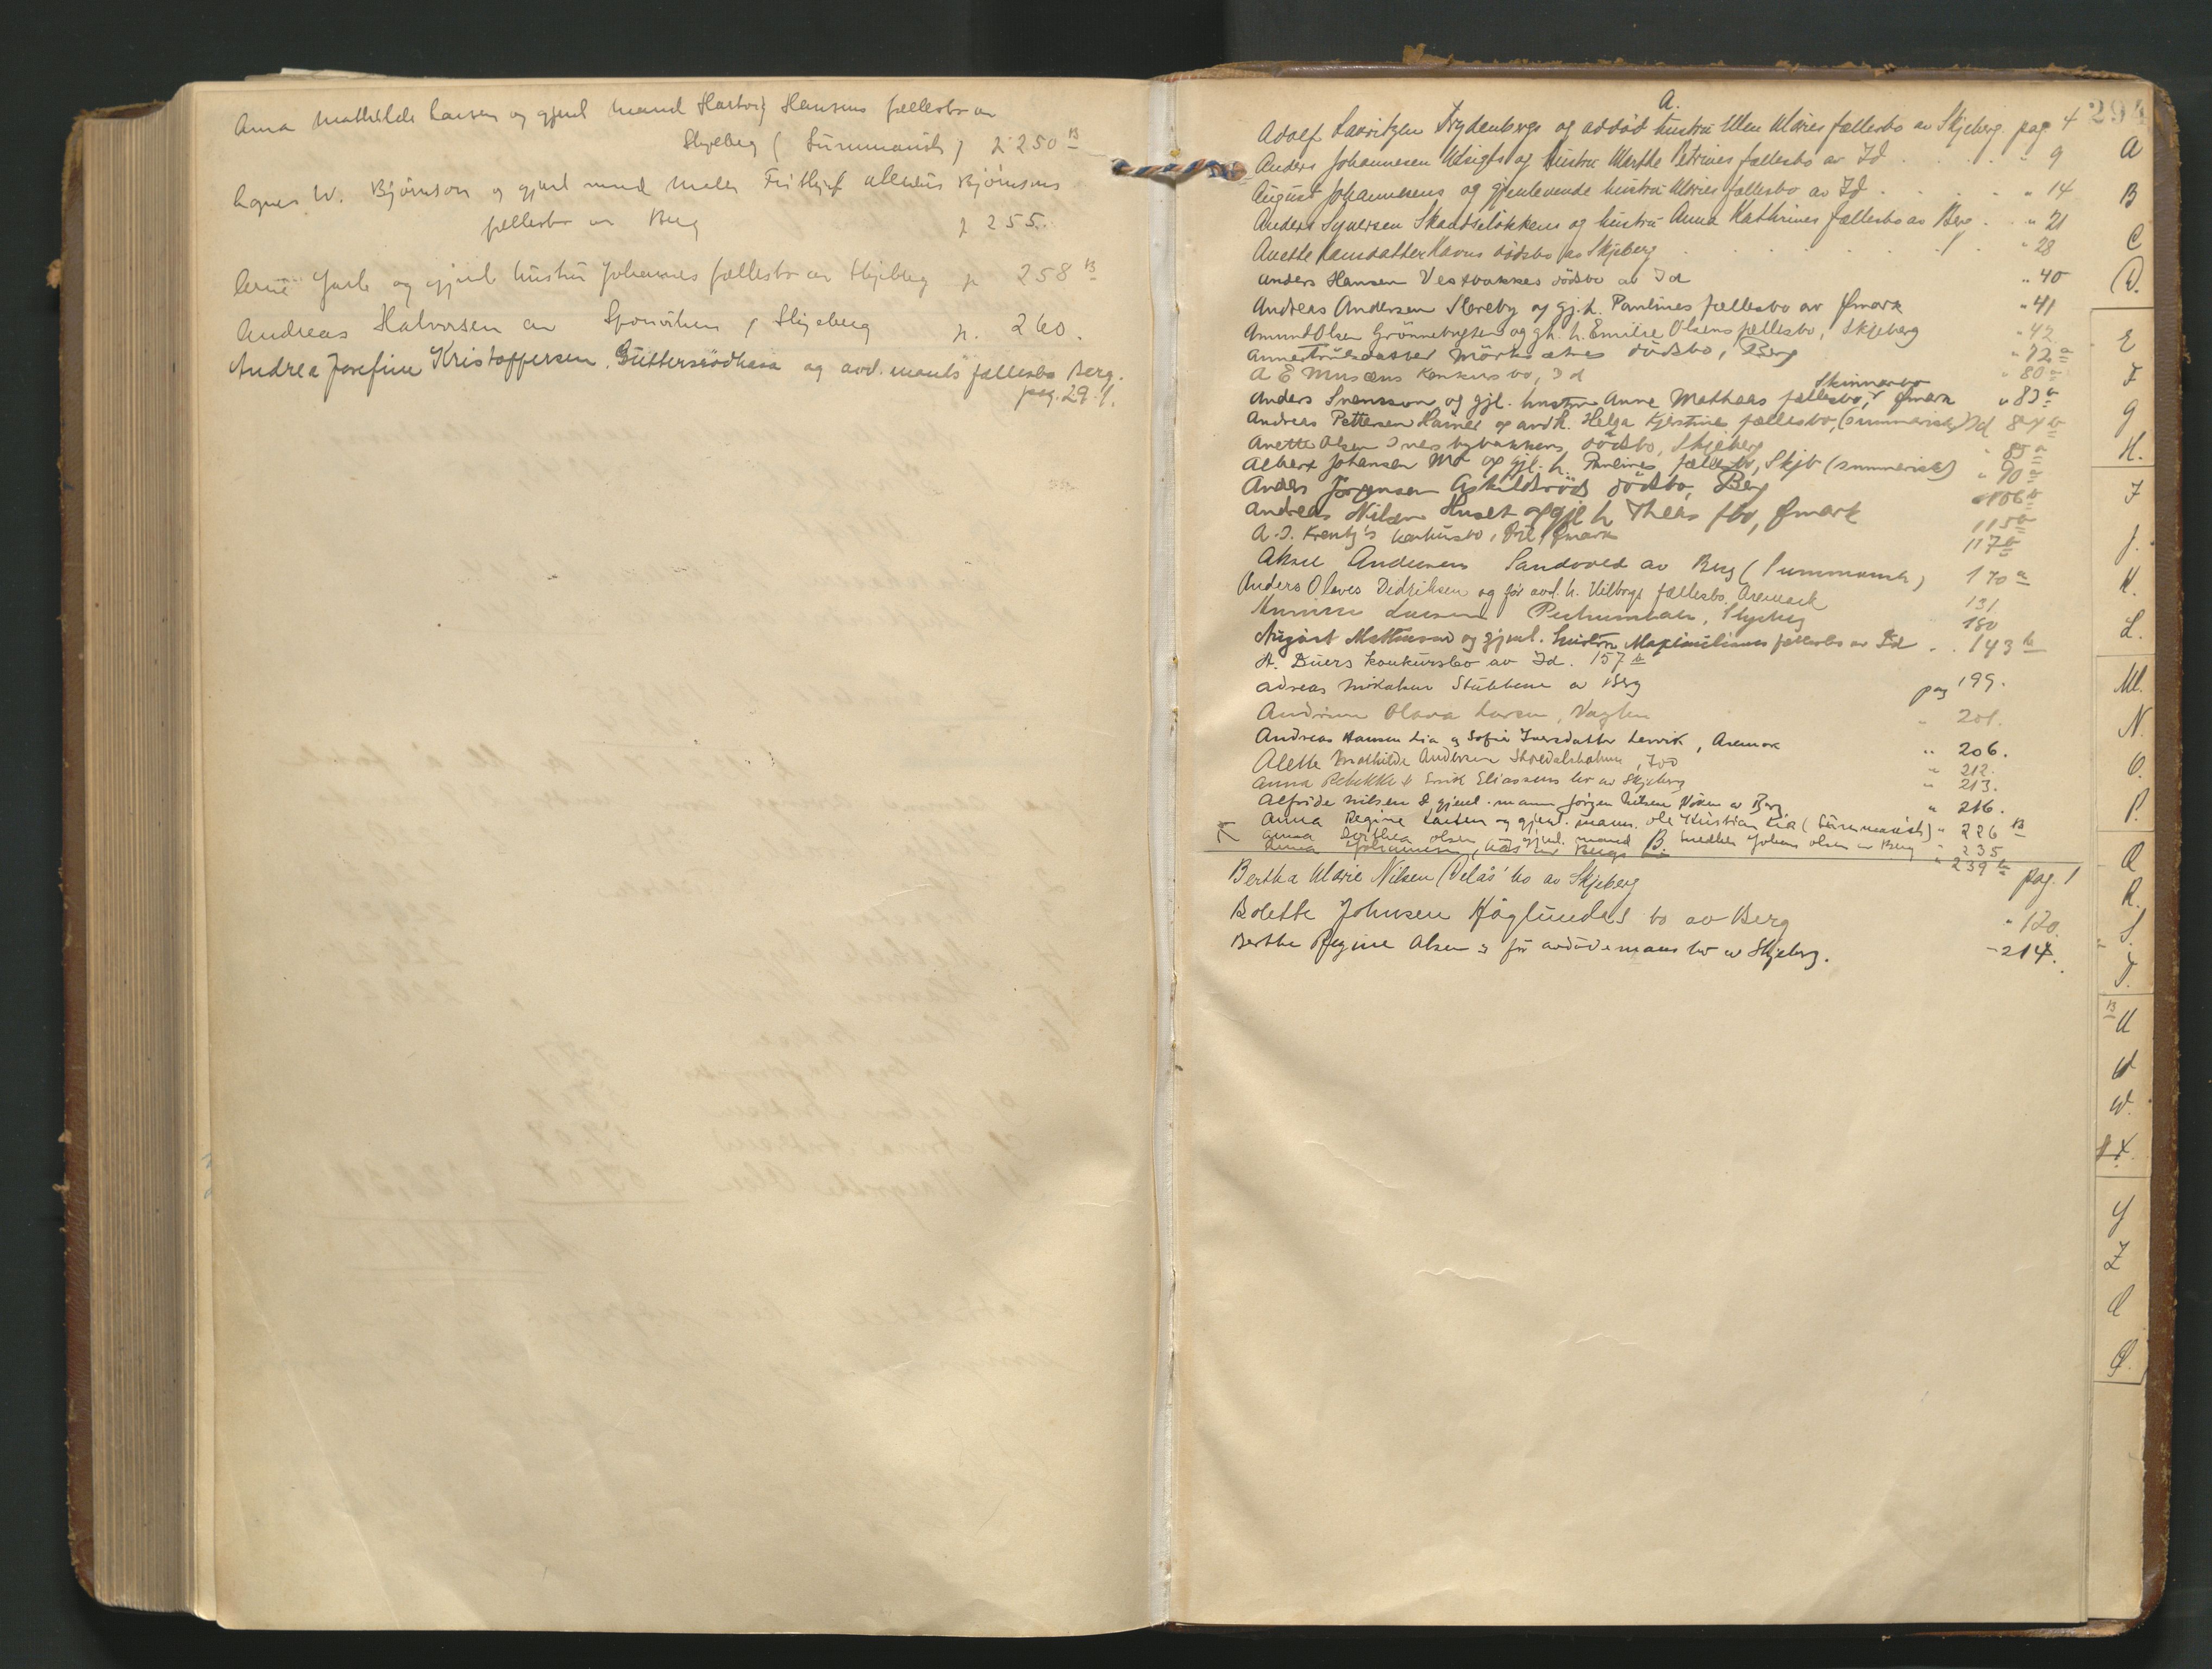 Anna Mathilde Larsen og gjenl mand Hartvig Hansens fællesbo av
Skjeberg (Summarisk) p 250 B
Agnes W. Bjørnson og gjenl mand Maler Frithjof Bjørnsons
fællesbo av Berg p 255.
og gjenl hustru Johannes fællesbo av Skjeberg p 258 B
Andreas Halvorsen av Sponviken, Skjeberg p. 260.
Andrea Josefine Kristoffersen, Guttersrödhaa og avd. mands fællesbo Berg.
pag. 291.
A. 294
Adolf Lauritzen Frydenbergs og avdød hustru Ellen Maries fællesbo av Skjeberg. pag. 4
Anders Johannesen Udsigts og hustru Marthe Petrines fællesbo av Id . . . . " 9
August Johannesens og gjenlevende hustru Maries fællesbo av Id . . . . " 14
Anders Syversen og hustru Anna Kathrines fællesbo av Berg . . " 21
Anette Hansdatter Havns dödsbo av Skjeberg . . . . " 28
Anders Hansen Vestbakkes dödsbo av Id " 40
Andreas Andersen og gj. h. Paulines fællesbo av Ømark " 41
Amund Olsen og gh. h. Emilie Olsens fællesbo, Skjeberg " 42
Anne Truelsdatter dödsbo, Berg " 72 a
A E Musæus Konkursbo, Id " 80 a
Skinnarbo
Anders Svensson og gjl. hustru Anne Matheas fællesbo, Ømark " 83 a
Andreas Pettersen og avd h. Helga Kjerstines fællesbo, (summarisk) Id 84 b
Anette Olsen dödsbo, Skjeberg " 85 a
Albert Johansen Mo og gjl. h. Paulines fællesbo, Skjb (summarisk) " 90 a
Anders Jørgensen Askildsröds dödsbo, Berg 106 b
Andreas Nilsen Huset og gjl h Theas fbo, Ømark 115 a
A. J. Konkursbo, Ømark 117 b
Aksel Andersen Sandvold av Berg (Summarisk) 170 a
Anders Olaves Didriksen og før avd. h. Vilborgs fællesbo, Aremark 131
Larsen, Skjeberg 180
August Mathisens og gjenl. hustru Maximilianes fællesbo av Id . . 143 b
A. Duers konkursbo av Id. 157 b
Adreas Stubbene av Berg pag 199.
Andrine Olava Larsen, " 201.
Andreas Hansen Lia og Sofie Iversdatter Lervik, Aremark " 206.
Alette Mathilde Andersen, Idd " 212.
Anna Rebekka & Emil Eliassens bo av Skjeberg " 213.
Alfride Nilsen & gjenl. mann Jørgen Nilsen av Berg " 216.
Anna Regine Larsen og gjenl. mann. Ole Kristian Lia (Summarisk) " 226 B
Anna Dorthea Olsen, gjenl. mand Johans Olsen av Berg " 235
Anna Johannesen, av Berg " 239 b
B.
Bertha Marie Nilsen (Velås' bo av Skjeberg pag. 1
Bolette Johnsen Høglunds bo av Berg " 120.
Berthe Regine Olsen og før avdøde mans bo av Skjeberg. - 214.
A
B
C
D.
E
F
G
H.
I
J.
K.
L.
M.
N.
O.
P.
Q
R.
S.
T.
U
V
W.
X.
Y
Z
Æ
Ø.